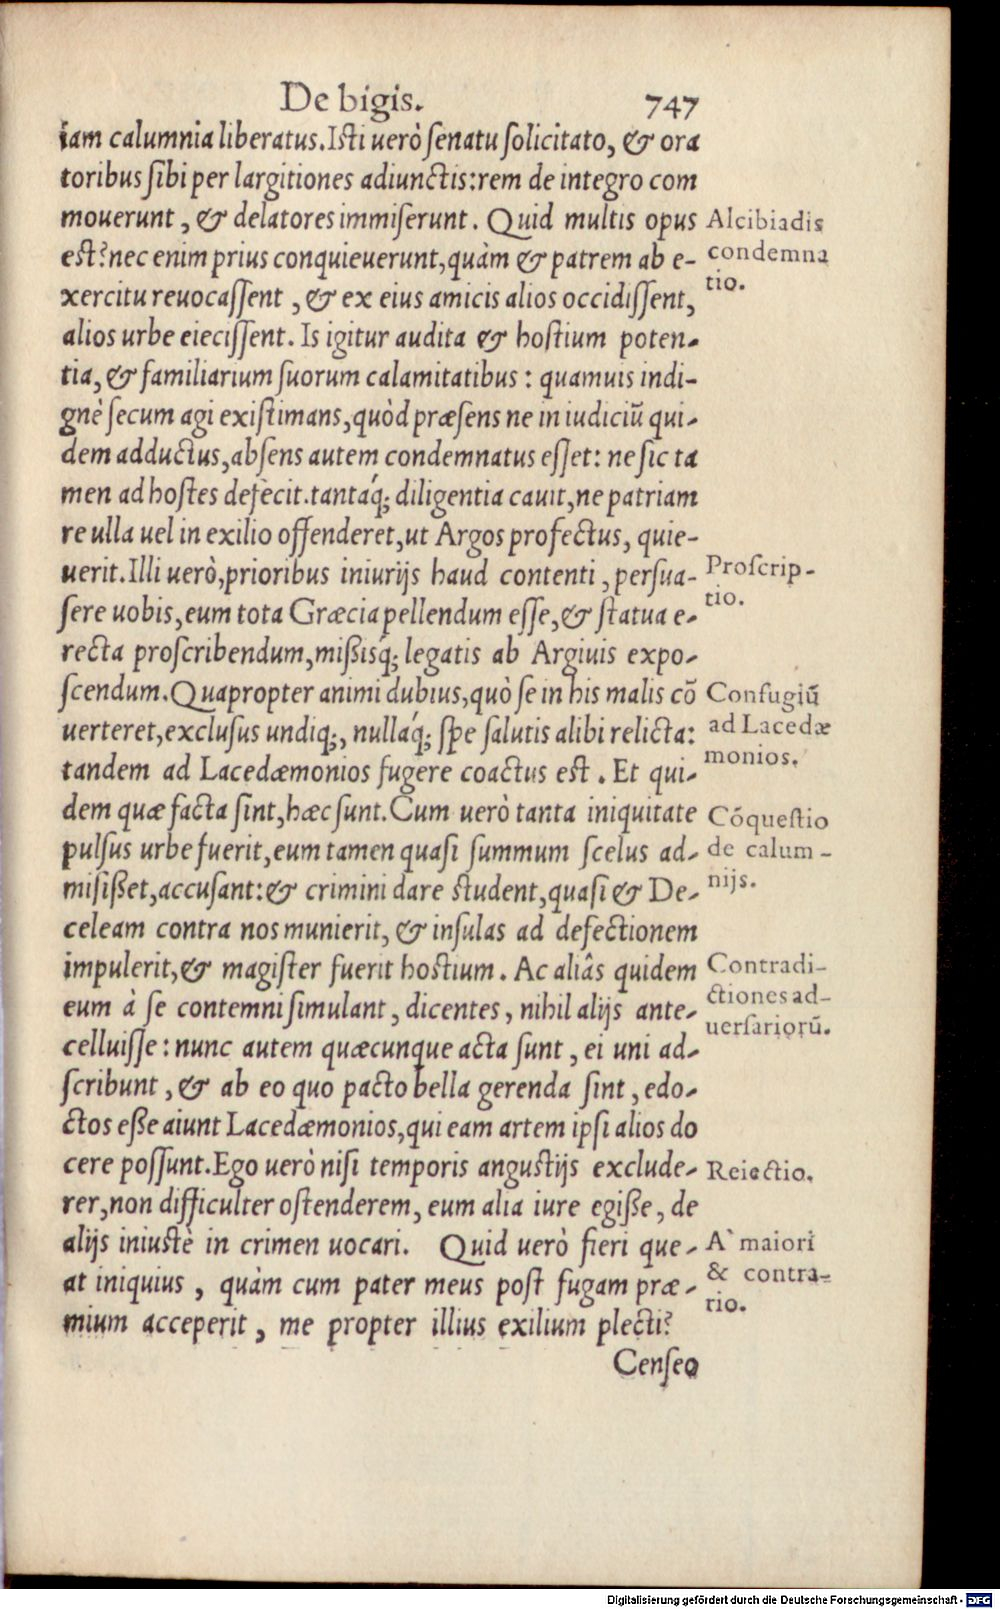 De bigis. 747
iam calumnia liberatus. Isti uerò ſenatu ſolicitato, & ora
toribus ſibi per largitiones adiunctis: rem de integro com
mouerunt, & delatores immiſerunt. Quid multis opus
eſt? nec enim prius conquieuerunt, quàm & patrem ab e-
xercitu reuocaſſent, & ex eius amicis alios occidiſſent,
alios urbe eieciſſent. Is igitur audita & hoſtium poten-
tia, & familiarium ſuorum calamitatibus: quamuis indi-
gnè ſecum agi exiſtimans, quòd præſens ne in iudiciũ qui-
dem adductus, abſens autem condemnatus eſſet: ne ſic ta
men ad hoſtes defecit. tantáq; diligentia cauit, ne patriam
re ulla uel in exilio offenderet, ut Argos profectus, quie-
uerit. Illi uerò, prioribus iniurijs haud contenti, perſua-
ſere uobis, eum tota Græcia pellendum eſſe, & ſtatua e-
recta proſcribendum, mißisq́; legatis ab Argiuis expo-
ſcendum. Quapropter animi dubius, quò ſe in his malis cõ
uerteret, excluſus undiq;, nullaq́; ſpe ſalutis alibi relicta:
tandem ad Lacedæmonios fugere coactus eſt. Et qui-
dem quæ facta ſint, hæc ſunt. Cum uerò tanta iniquitate
pulſus urbe fuerit, eum tamen quaſi ſummum ſcelus ad-
miſißet, accuſant: & crimini dare ſtudent, quaſi & De-
celeam contra nos munierit, & inſulas ad defectionem
impulerit, & magiſter fuerit hoſtium. Ac aliâs quidem
eum à ſe contemni ſimulant, dicentes, nihil alijs ante-
celluiſſe: nunc autem quæcunque acta ſunt, ei uni ad-
ſcribunt, & ab eo quo pacto bella gerenda ſint, edo-
ctos eße aiunt Lacedæmonios, qui eam artem ipſi alios do
cere poſſunt. Ego uerò niſi temporis anguſtijs exclude-
rer, non difficulter oſtenderem, eum alia iure egiße, de
alijs iniuſtè in crimen uocari. Quid uerò fieri que-
at iniquius, quàm cum pater meus poſt fugam præ-
mium acceperit, me propter illius exilium plecti?
Cenſeo
Alcibiadis
condemna
tio.
Proſcrip-
tio.
Confugiũ
ad Lacedæ
monios.
Cõqueſtio
de calum-
nijs.
Contradi-
ctiones ad-
uerſariorũ.
Reiectio.
A` maiori
& contra-
rio.
Digitalisierung gefördert durch die Deutsche Forschungsgemeinschaft - DFG